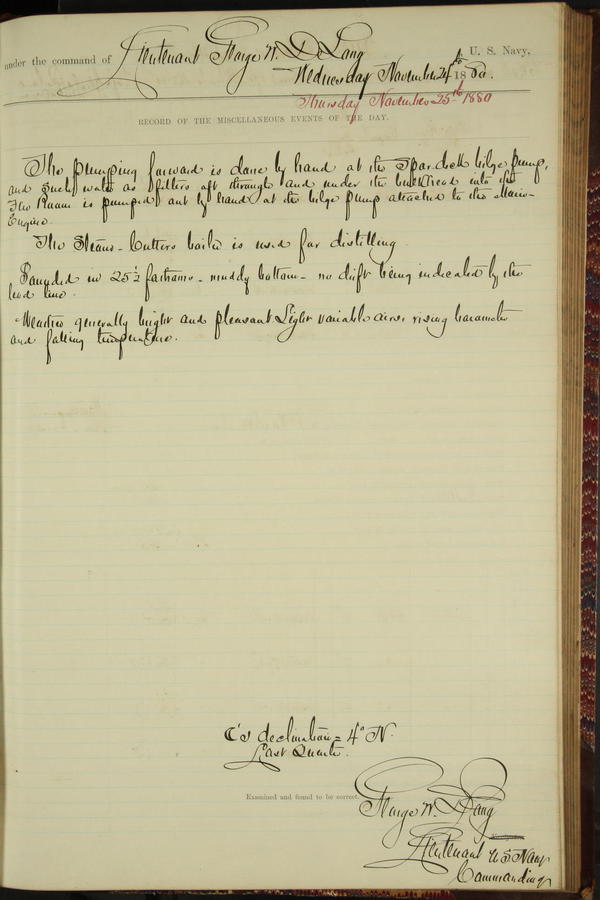 under the command of Lieutenant George W. De Long U. S. Navy,
Wednesday November 24th 1880.
Thursday November 25th 1880
RECORD OF THE MISCELLANEOUS EVENTS OF THE DAY.
The pumping forward is done by hand at the Spar-deck bilge pump,
and such water as filters aft through and under the bulkhead into the
Fire Room is pumped out by hand at the bilge pump attached to the Main-
Engine.
The Steam-Cutters boiler is used for distilling
Sounded in 25½ fathoms - muddy bottom - no drift being indicated by the
lead line.
Weather generally bright and pleasant Light variable airs, rising barometer
and falling temperature.
☾'s declination = 4° N.
Last Quarter.
Examined and found to be correct.
George W. De Long
Lieutenant U.S. Navy
Commanding